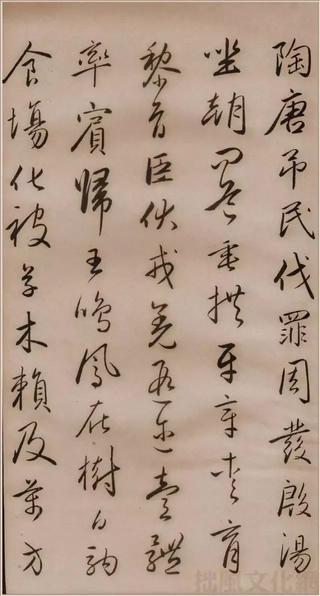 陶唐吊民伐罪周發殷湯
坐朝問道垂拱平章愛育
黎首臣伏戎羌遐迩壹體
率賓歸王鳴鳳在樹白駒
食場化被草木賴及萬方
拙風文化網